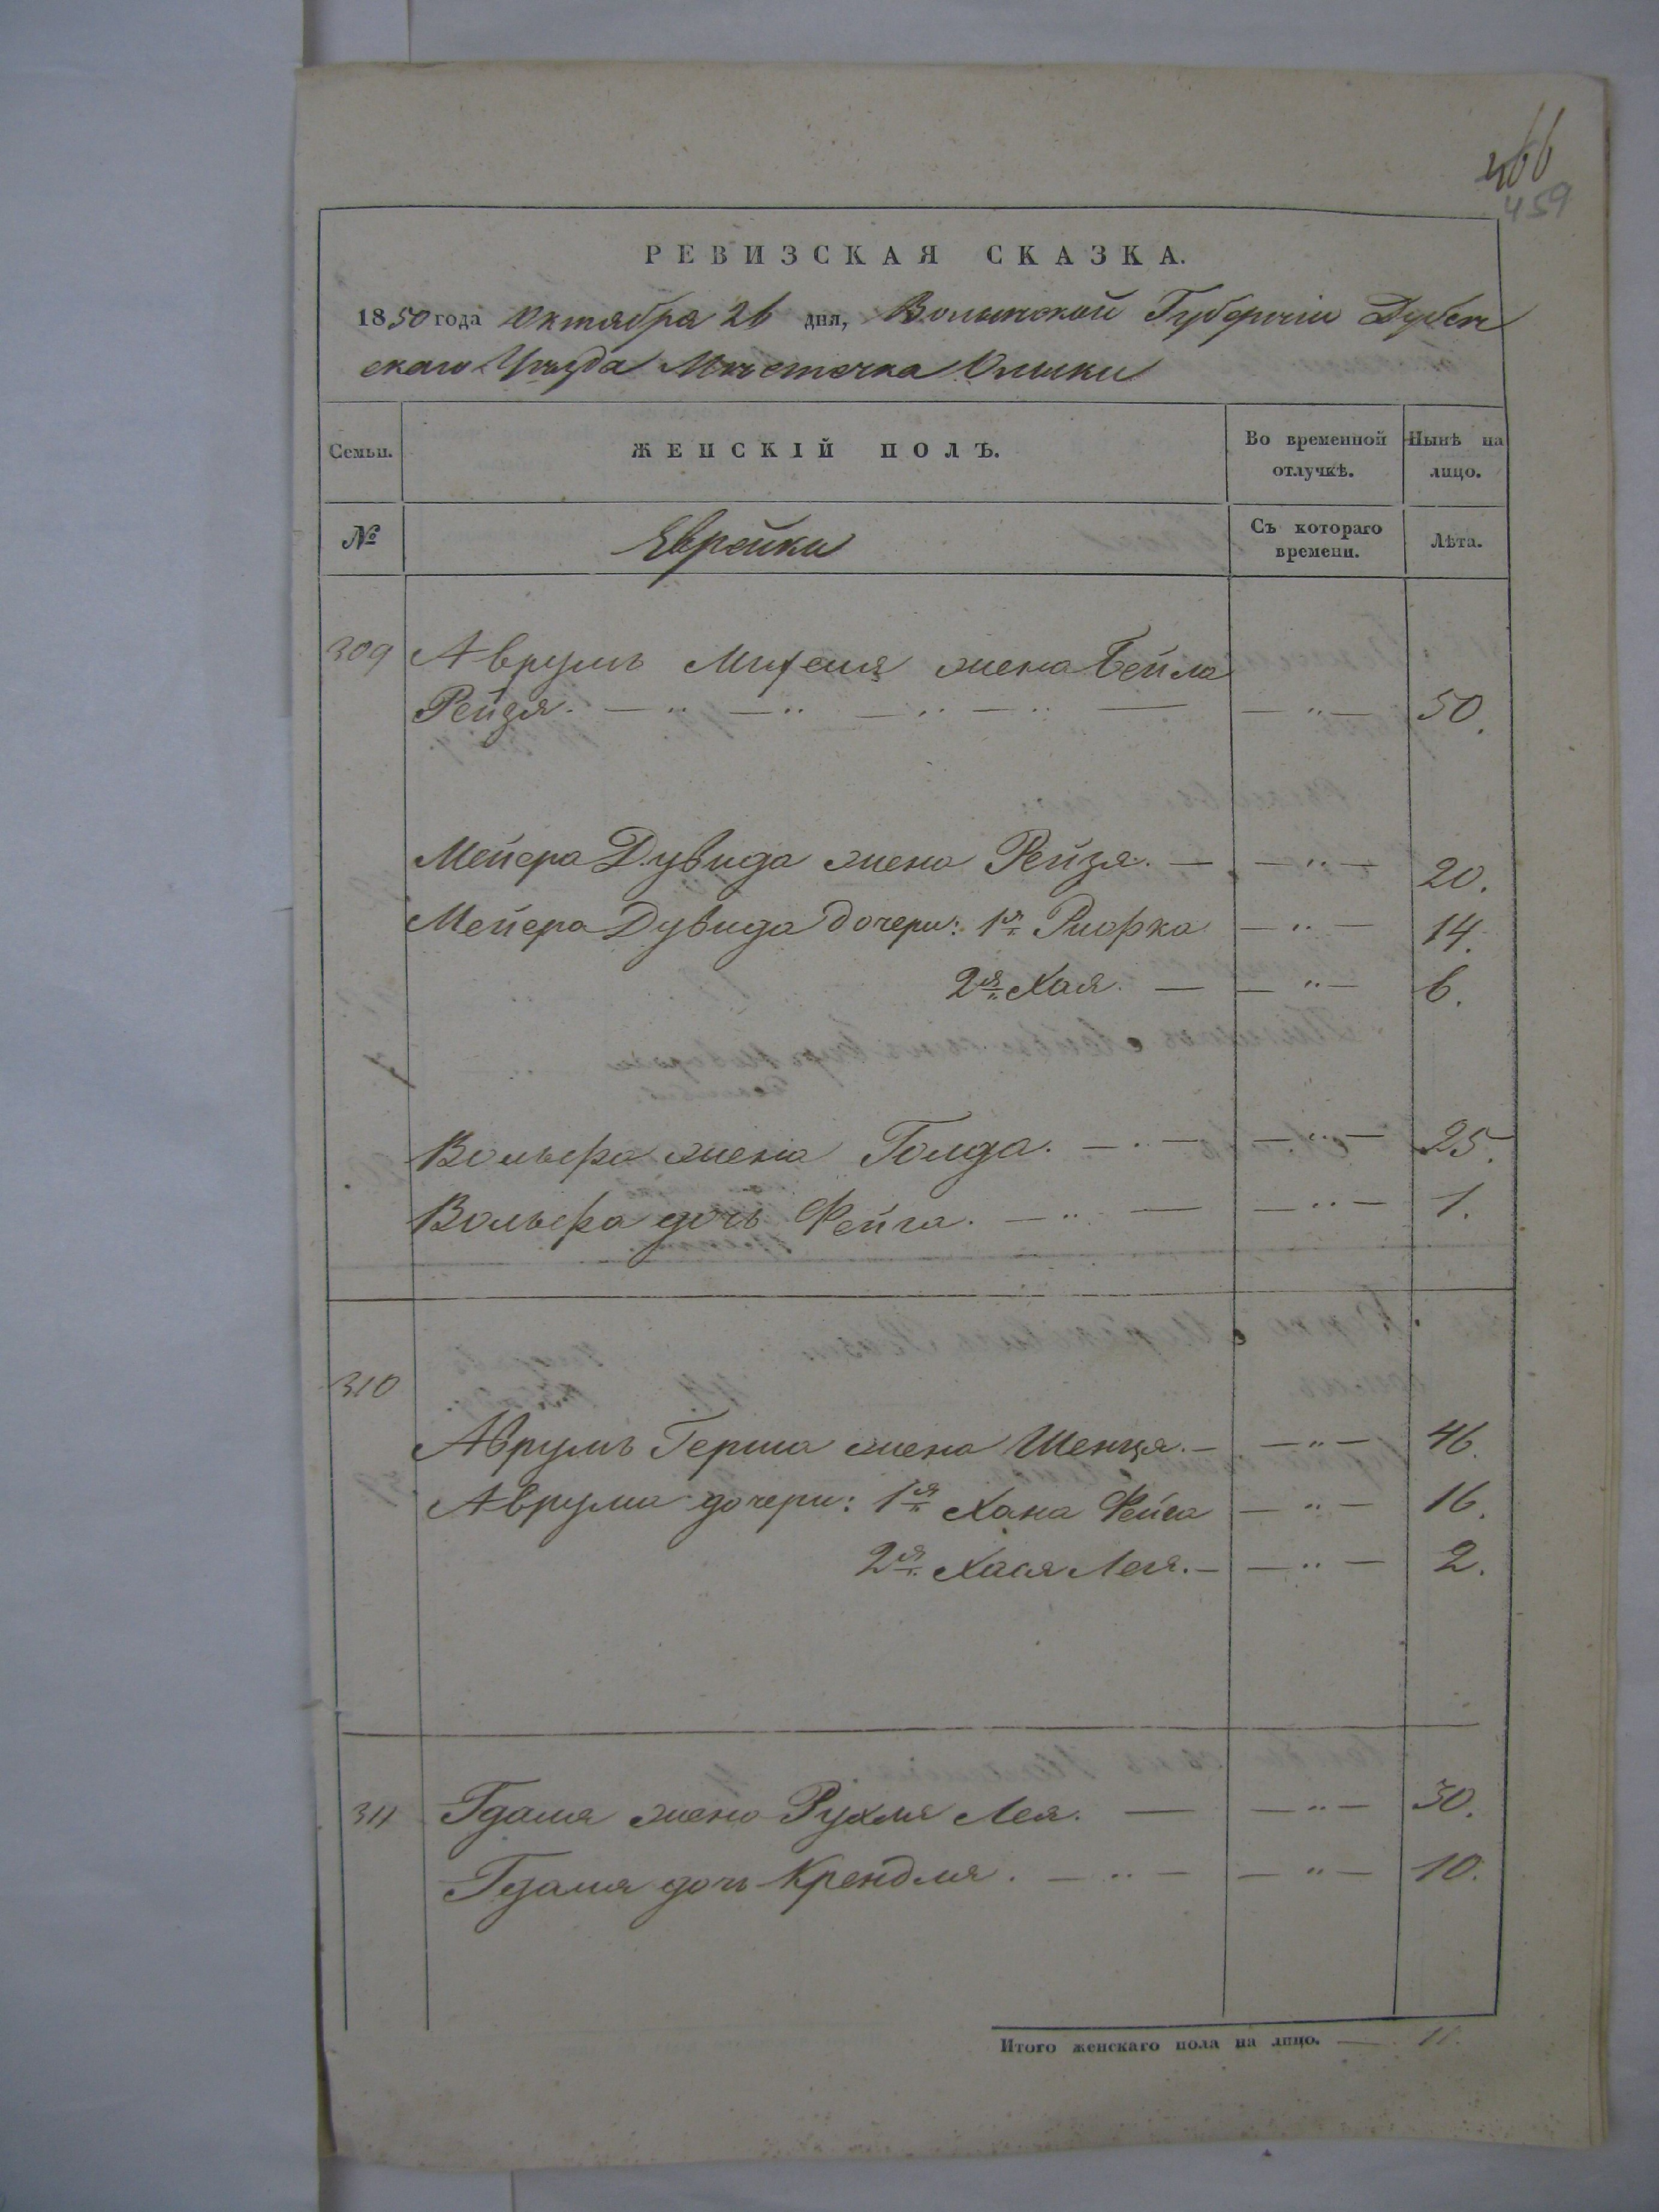 466
459
РЕВИЗСКАЯ СКАЗКА.
1850 года Октября 26 дня, Волынской Губерніи Дубен
скаго Уѣзда Мѣстечка Олыки
Семьи.
ЖЕНСКІЙ ПОЛЪ.
Во временной отлучкѣ.
Нынѣ на лицо.
№
Еврейки
Съ котораго времени.
Лѣта.
309 Аврумъ Михеля жена Бейла
Рейзя. — " — 50.
Мейера Дувида жена Рейзя. — — " — 20.
Мейера Дувида дочери: 1я Рифка — " — 14.
2я Хая. — — " — 6.
Вольфа жена Голда. — " — — " — 25.
Вольфа дочь Фейга. — " — — " — 1.
310
Аврумъ Герша жена Шенця. — — " — 46.
Аврума дочери: 1я Хана Фейга — " — 16.
2я Хася Лея. — — " — 2.
311 Гдаля жена Рухля Лея. — — " — 30.
Гдаля дочь Крендля. — " — — " — 10.
Итого женскаго пола на лицо. — 11.